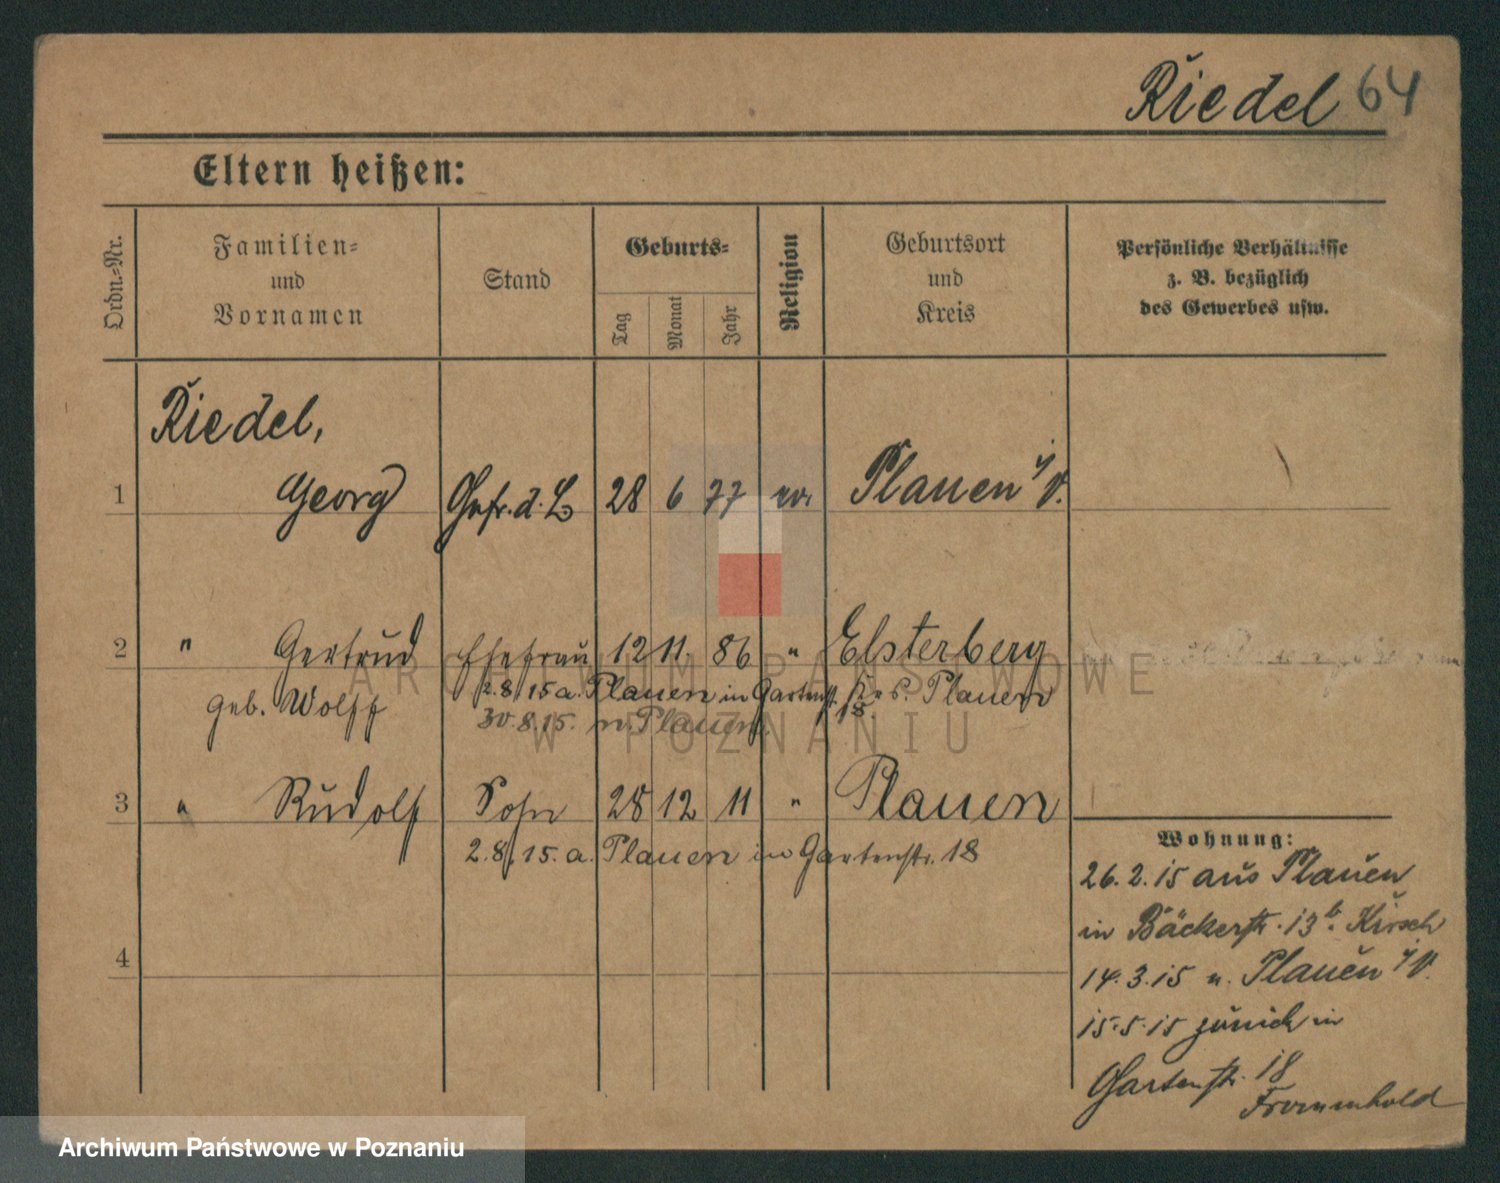 Riedel 64
Eltern heißen:
Ordn.=Nr.
Familien=
und
Vornamen
Stand
Geburts=
Tag
Monat
Jahr
Religion
Geburtsort
und
Kreis
Persönliche Verhältnisse
z. B. bezüglich
des Gewerbes usw.
Riedel,
1 Georg Gefr. d. L. 28 6 77 ev. Plauen i/V.
2 " Gertrud Ehefrau 12 11. 86 " Elsterberg
geb. Wolff 2.8.15 a. Plauen in Gartenstr. 18. Krs. Plauen
30.8.15. n. Plauen.
3 " Rudolf Sohn 28 12 11 " Plauen
2.8.15. a. Plauen in Gartenstr. 18
4
Wohnung:
26.2.15 aus Plauen
in Bäckerstr. 13 b. Kirsch
14.3.15 n. Plauen i/V.
15.5.15 zurück in
Gartenstr. 18
Frommhold
ARCHIWUM PAŃSTWOWE
W POZNANIU
Archiwum Państwowe w Poznaniu